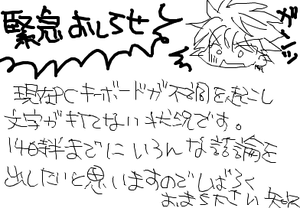 緊急おしらせ!
ガーンッ
現在PCキーボードが不調を起こし
文字がキてない状況です。
14日半までにいろんな議論を
出したいと思いますのでしばらく
おまち下さい